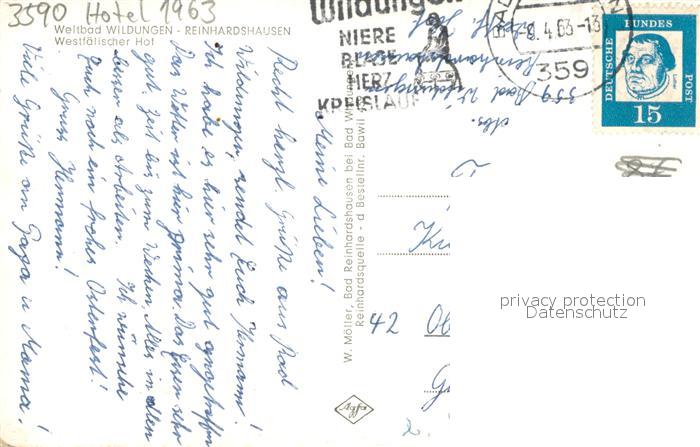 3590 Hotel 1963
Weltbad WILDUNGEN - REINHARDSHAUSEN
Westfälischer Hof
Wildungen
NIERE
BLASE
HERZ
KREISLAUF
-9.4.63-13
359
DEUTSCHE
BUNDES
POST
15
Abs.
Westf. Hof
Reinhardshausen
359 Bad Wildungen
Meine Lieben!
Recht herzl. Grüße aus Bad
Wildungen, sendet Euch Hermann!
Ich habe es hier sehr gut angetroffen
Das Wetter ist hier prima. Das Essen sehr
gut, Zeit bis zum Weihen, Alles in allem
besser als Arbeiten. Ich wünsche
Euch noch ein frohes Osterfest!
Gruss Hermann!
Viele Grüße an Papa u Mama!
W. Möller, Bad Reinhardshausen bei Bad Wildungen
Reinhardsquelle - d Bestellnr. Bawil
42 Ob
privacy protection
Datenschutz
Agfa
2.